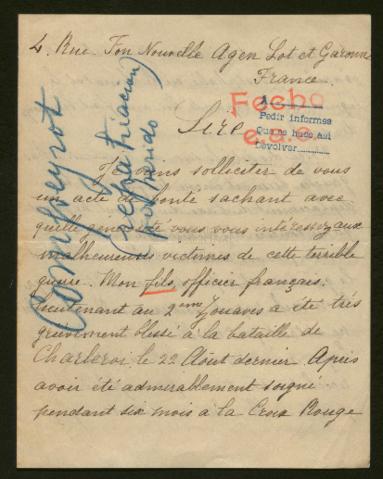 4, Rue Fon Nouvelle Agen Lot et Garonne
France.
Fecho
A
Pedir informes
Que se hace asi
Devolver
Sire
Je viens solliciter de vous
un acte de bonté sachant avec
quelle générosité vous vous intéressez aux
malheureuses victimes de cette terrible
guerre. Mon fils officier français,
lieutenant au 2eme Zouaves a été très
grièvement blessé à la bataille de
Charleroi le 22 Août dernier. Après
avoir été admirablement soigné
pendant six mois à la Croix Rouge
(repatriacion
herido